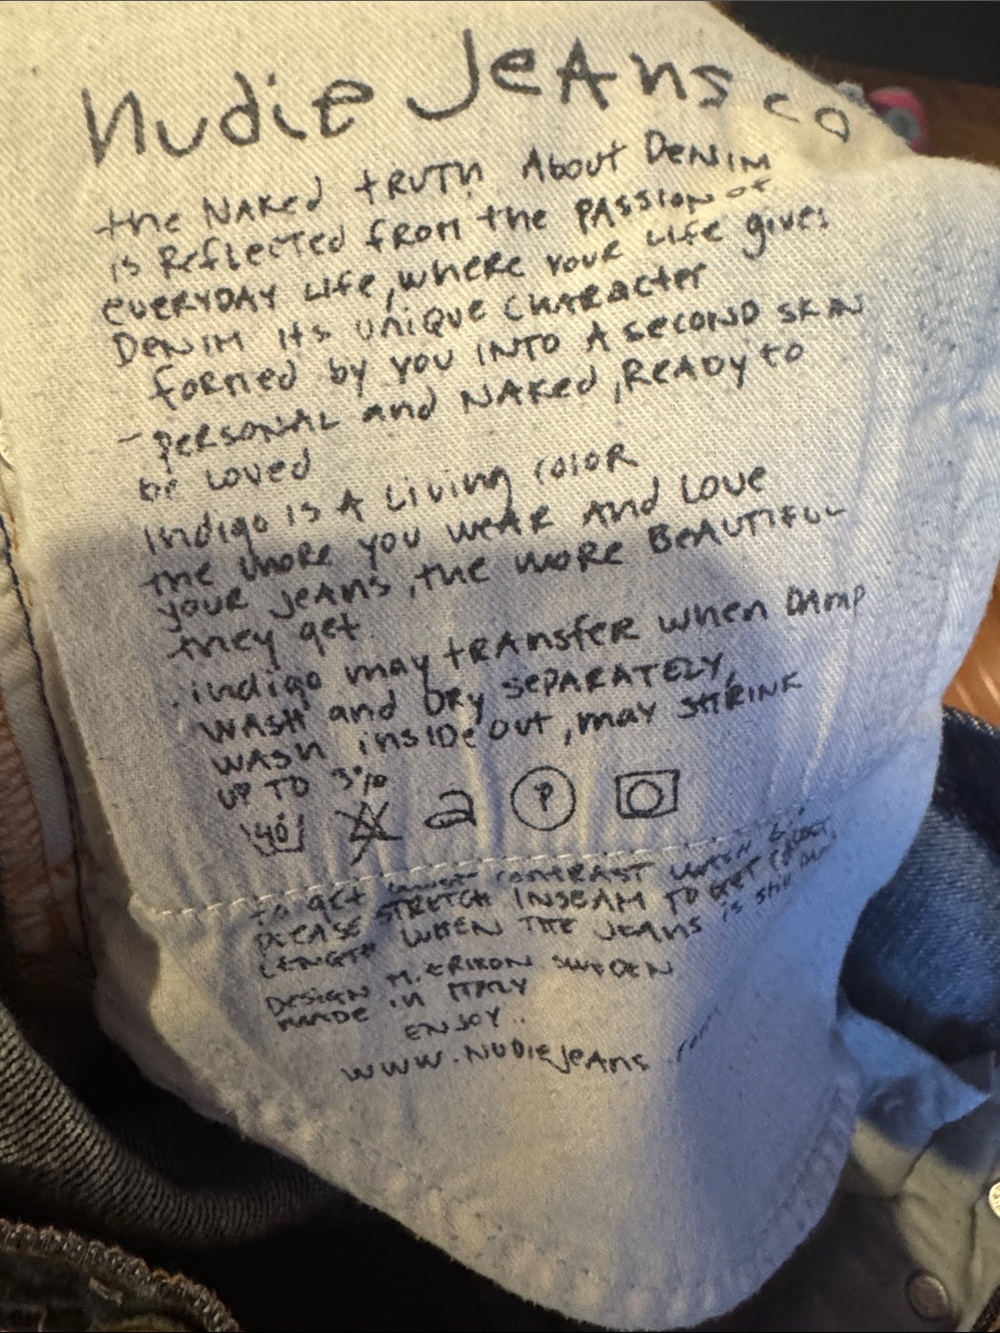 nudie JeAns co
the NAKed tRUTh About DeNIM
is ReflecTed from the PASSION of
eveRYDAY Life, where YouR Life gives
DeNIM its uniQue CHARacter
formed by you INTO A second skin
- peRSONAL and NAKed, ReADy to
be Loved
Indigo is A Living color
the more you weAR And Love
youR jeANS, the moRe BeAUTIFUL
they get
indigo may tRAnsfeR when DAmp
WASH and DRy sepARATELY,
WASH insIDe out, may SHRINK
UP TO 3%
40 A P
to get most CONTRAST WASH 60°
PLEASE STRETCH INSEAM TO GET CORRECT
LENGTH WHEN THE JEANS is still DAmp
DESIGN M. ERIXON SWEDEN
MADE in ITALY
ENJOY..
www.NUDIEjeAns.com